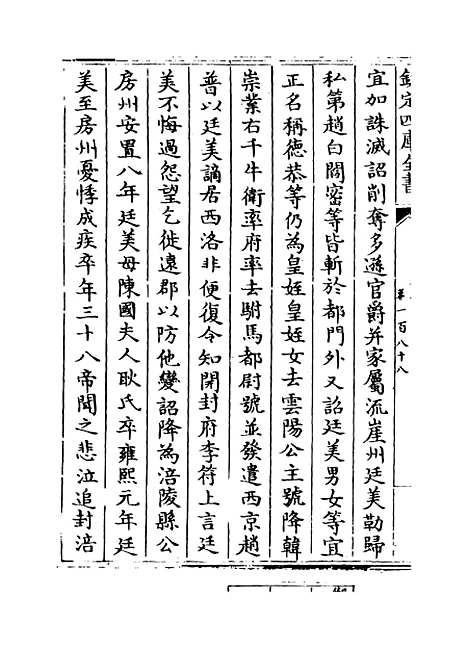 欽定四庫全書
卷一百八十八
宜加誅滅詔削奪多遜官爵并家屬流崖州廷美勒歸
私第趙白閻密等皆斬於都門外又詔廷美男女等宜
正名稱德恭等仍為皇姪皇姪女去雲陽公主號降韓
崇業右千牛衛率府率去駙馬都尉號並發遣西京趙
普以廷美謫居西洛非便復令知開封府李符上言廷
美不悔過怨望乞徙遠郡以防他變詔降為涪陵縣公
房州安置八年廷美母陳國夫人耿氏卒雍熙元年廷
美至房州憂悸成疾卒年三十八帝聞之悲泣追封涪